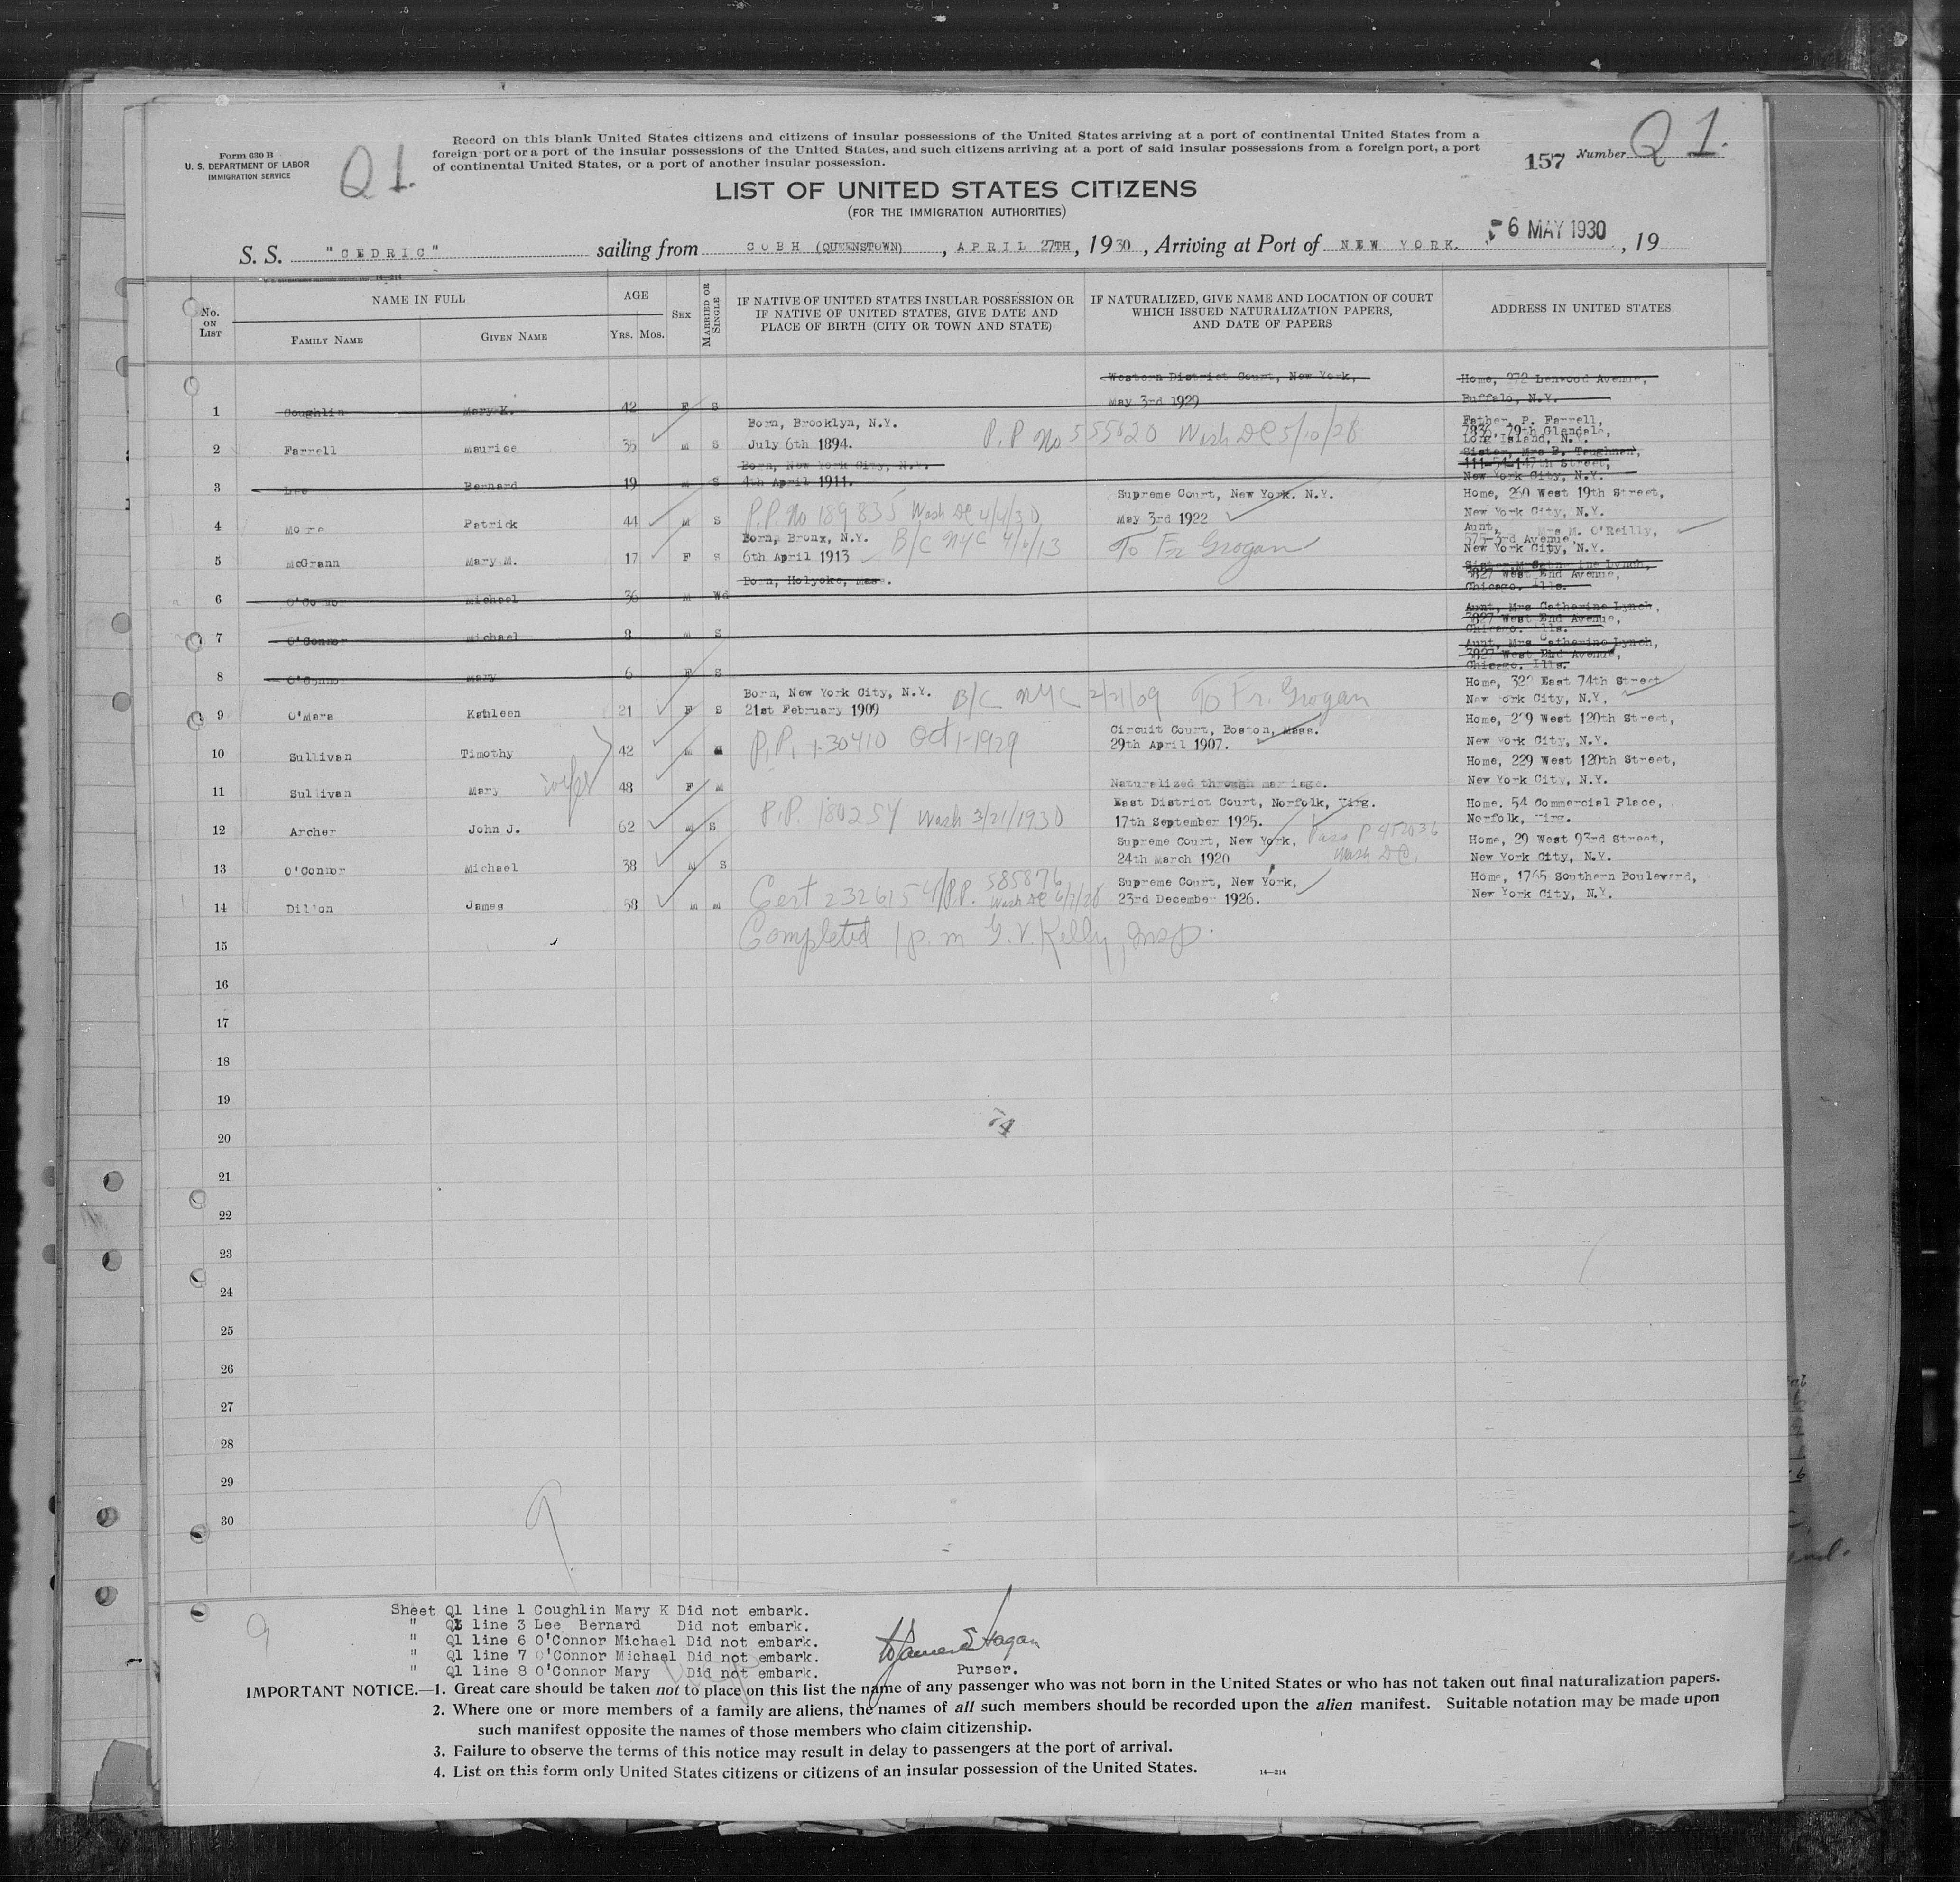 Form 630 B
U. S. DEPARTMENT OF LABOR
IMMIGRATION SERVICE
Q1.
Record on this blank United States citizens and citizens of insular possessions of the United States arriving at a port of continental United States from a
foreign port or a port of the insular possessions of the United States, and such citizens arriving at a port of said insular possessions from a foreign port, a port
of continental United States, or a port of another insular possession.
157 Number Q1.
LIST OF UNITED STATES CITIZENS
(FOR THE IMMIGRATION AUTHORITIES)
S. S. "CEDRIC" sailing from COBH (QUEENSTOWN), APRIL 27TH, 1930, Arriving at Port of NEW YORK. 6 MAY 1930, 19
No. ON LIST
NAME IN FULL
FAMILY NAME
GIVEN NAME
AGE
YRS. MOS.
SEX
MARRIED OR SINGLE
IF NATIVE OF UNITED STATES INSULAR POSSESSION OR
IF NATIVE OF UNITED STATES, GIVE DATE AND
PLACE OF BIRTH (CITY OR TOWN AND STATE)
IF NATURALIZED, GIVE NAME AND LOCATION OF COURT
WHICH ISSUED NATURALIZATION PAPERS,
AND DATE OF PAPERS
ADDRESS IN UNITED STATES
Western District Court, New York, Home, 272 Lenwood Avenue,
Buffalo, N.Y.
1 Coughlin Mary K. 42 F S May 3rd 1929
Born, Brooklyn, N.Y. Father, P. Farrell,
7836, 79th Glendale,
2 Farrell Maurice 35 M S July 6th 1894. P.P. No 555820 Wash DC 5/10/28 Long Island, N.Y.
Born, New York City, N.Y. Sister, Mrs B.
111-54-147th Street,
3 Lee Bernard 19 M S 4th April 1911. New York City, N.Y.
Supreme Court, New York. N.Y. Home, 260 West 19th Street,
4 Moore Patrick 44 M S P.P. No 189835 Wash DC 4/4/30 May 3rd 1922 New York City, N.Y.
Born, Bronx, N.Y. Aunt, Mrs M. O'Reilly,
575-3rd Avenue,
5 McGrann Mary M. 17 F S 6th April 1913 B/C NYC 4/6/13 To Fr Grogan New York City, N.Y.
Born, Holyoke, Mass. Lynch,
3827 West End Avenue,
6 O'Connor Michael 36 M Wd Chicago. Ills.
Aunt, Mrs Catherine Lynch,
3827 West End Avenue,
7 O'Connor Michael 8 M S Chicago. Ills.
Aunt, Mrs Catherine Lynch,
3827 West End Avenue,
8 O'Connor Mary 6 F S Chicago. Ills.
Born, New York City, N.Y. B/C NYC 2/21/09 To Fr. Grogan Home, 322 East 74th Street
9 O'Mara Kathleen 21 F S 21st February 1909 New York City, N.Y.
Circuit Court, Boston, Mass. Home, 229 West 120th Street,
10 Sullivan Timothy 42 M P.P. 130410 Oct 1-1929 29th April 1907. New York City, N.Y.
Home, 229 West 120th Street,
11 Sullivan Mary wife 48 F M Naturalized through marriage. New York City, N.Y.
East District Court, Norfolk, Virg. Home. 54 Commercial Place,
12 Archer John J. 62 M S P.P. 180254 Wash 3/21/1930 17th September 1925. Norfolk, Virg.
Supreme Court, New York, Pass P 452036 Home, 29 West 93rd Street,
13 O'Connor Michael 38 M S 24th March 1920 Wash DC. New York City, N.Y.
Supreme Court, New York, Home, 1765 Southern Boulevard,
14 Dillon James 58 M M Cert 2326154/P.P. 585876 Wash DC 6/7/28 23rd December 1926. New York City, N.Y.
15 Completed 1 p.m G.V. Kelly, Insp.
16
17
18
19
20
21
22
23
24
25
26
27
28
29
30
Sheet Q1 line 1 Coughlin Mary K Did not embark.
" Q1 line 3 Lee Bernard Did not embark.
" Q1 line 6 O'Connor Michael Did not embark.
" Q1 line 7 O'Connor Michael Did not embark.
" Q1 line 8 O'Connor Mary Did not embark.
Purser.
IMPORTANT NOTICE.—1. Great care should be taken not to place on this list the name of any passenger who was not born in the United States or who has not taken out final naturalization papers.
2. Where one or more members of a family are aliens, the names of all such members should be recorded upon the alien manifest. Suitable notation may be made upon
such manifest opposite the names of those members who claim citizenship.
3. Failure to observe the terms of this notice may result in delay to passengers at the port of arrival.
4. List on this form only United States citizens or citizens of an insular possession of the United States. 14—214